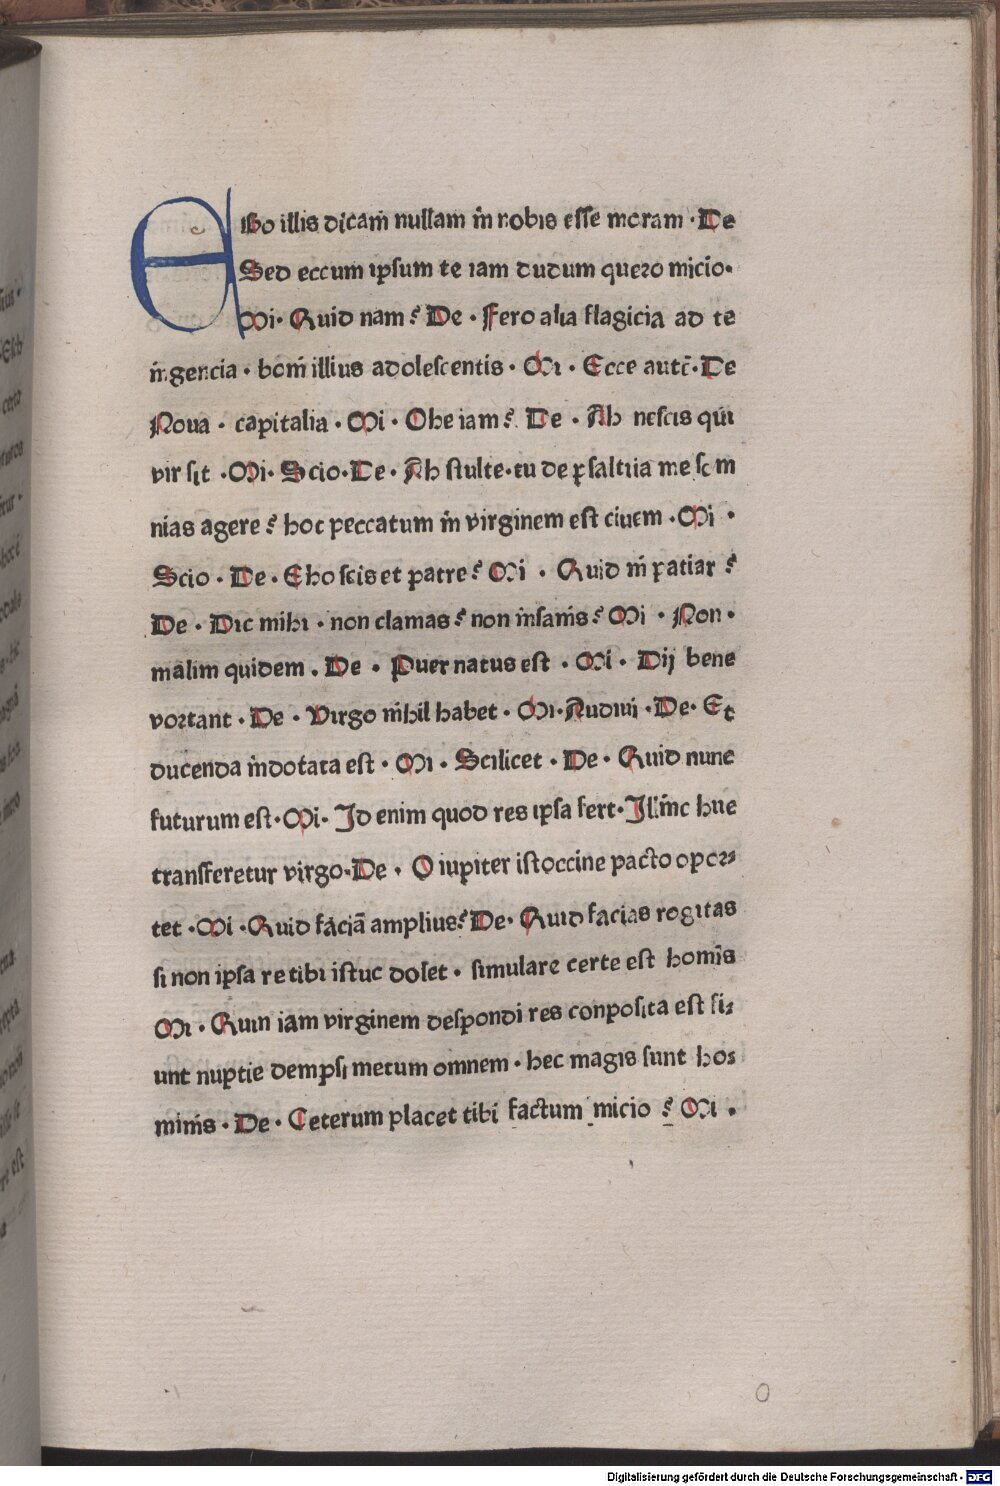 Eibo illis dicam̄ nullam m̄ nobis esse moram · De
Sed eccum ipsum te iam dudum quero micio·
Mi· Quid nam? De · Fero alia flagicia ad te
īngencia · bom̄ illius adolescentis · Mi · Ecce autē· De
Noua · capitalia · Mi · Ohe iam? De · Ah nescis qui
vir sit · Mi· Scio· De · Ah stulte· tu de psaltria me som
nias agere? hoc peccatum m̄ virginem est ciuem · Mi ·
Scio · De · Eho scis et patre? Mi · Quid m̄ patiar?
De · Dic mihi · non clamas? non m̄sam̄s? Mi · Non ·
malim quidem . De · Puer natus est · Mi · Dij bene
vortant · De · Virgo m̄hil habet · Mi· Audiui · De· Et
ducenda m̄dotata est · Mi · Scilicet · De · Quid nunc
futurum est· Mi· Id enim quod res ipsa fert· Illīnc huc
transferetur virgo· De · O iupiter istoccine pacto opor⸗
tet · Mi · Quid faciā amplius? De· Quid facias rogitas
si non ipsa re tibi istuc dolet · simulare certe est homīs
Mi · Quin iam virginem despondi res conposita est fi⸗
unt nuptie dempsi metum omnem · hec magis sunt ho⸗
mim̄s · De · Ceterum placet tibi factum micio ? Mi ·
Digitalisierung gefördert durch die Deutsche Forschungsgemeinschaft - DFG